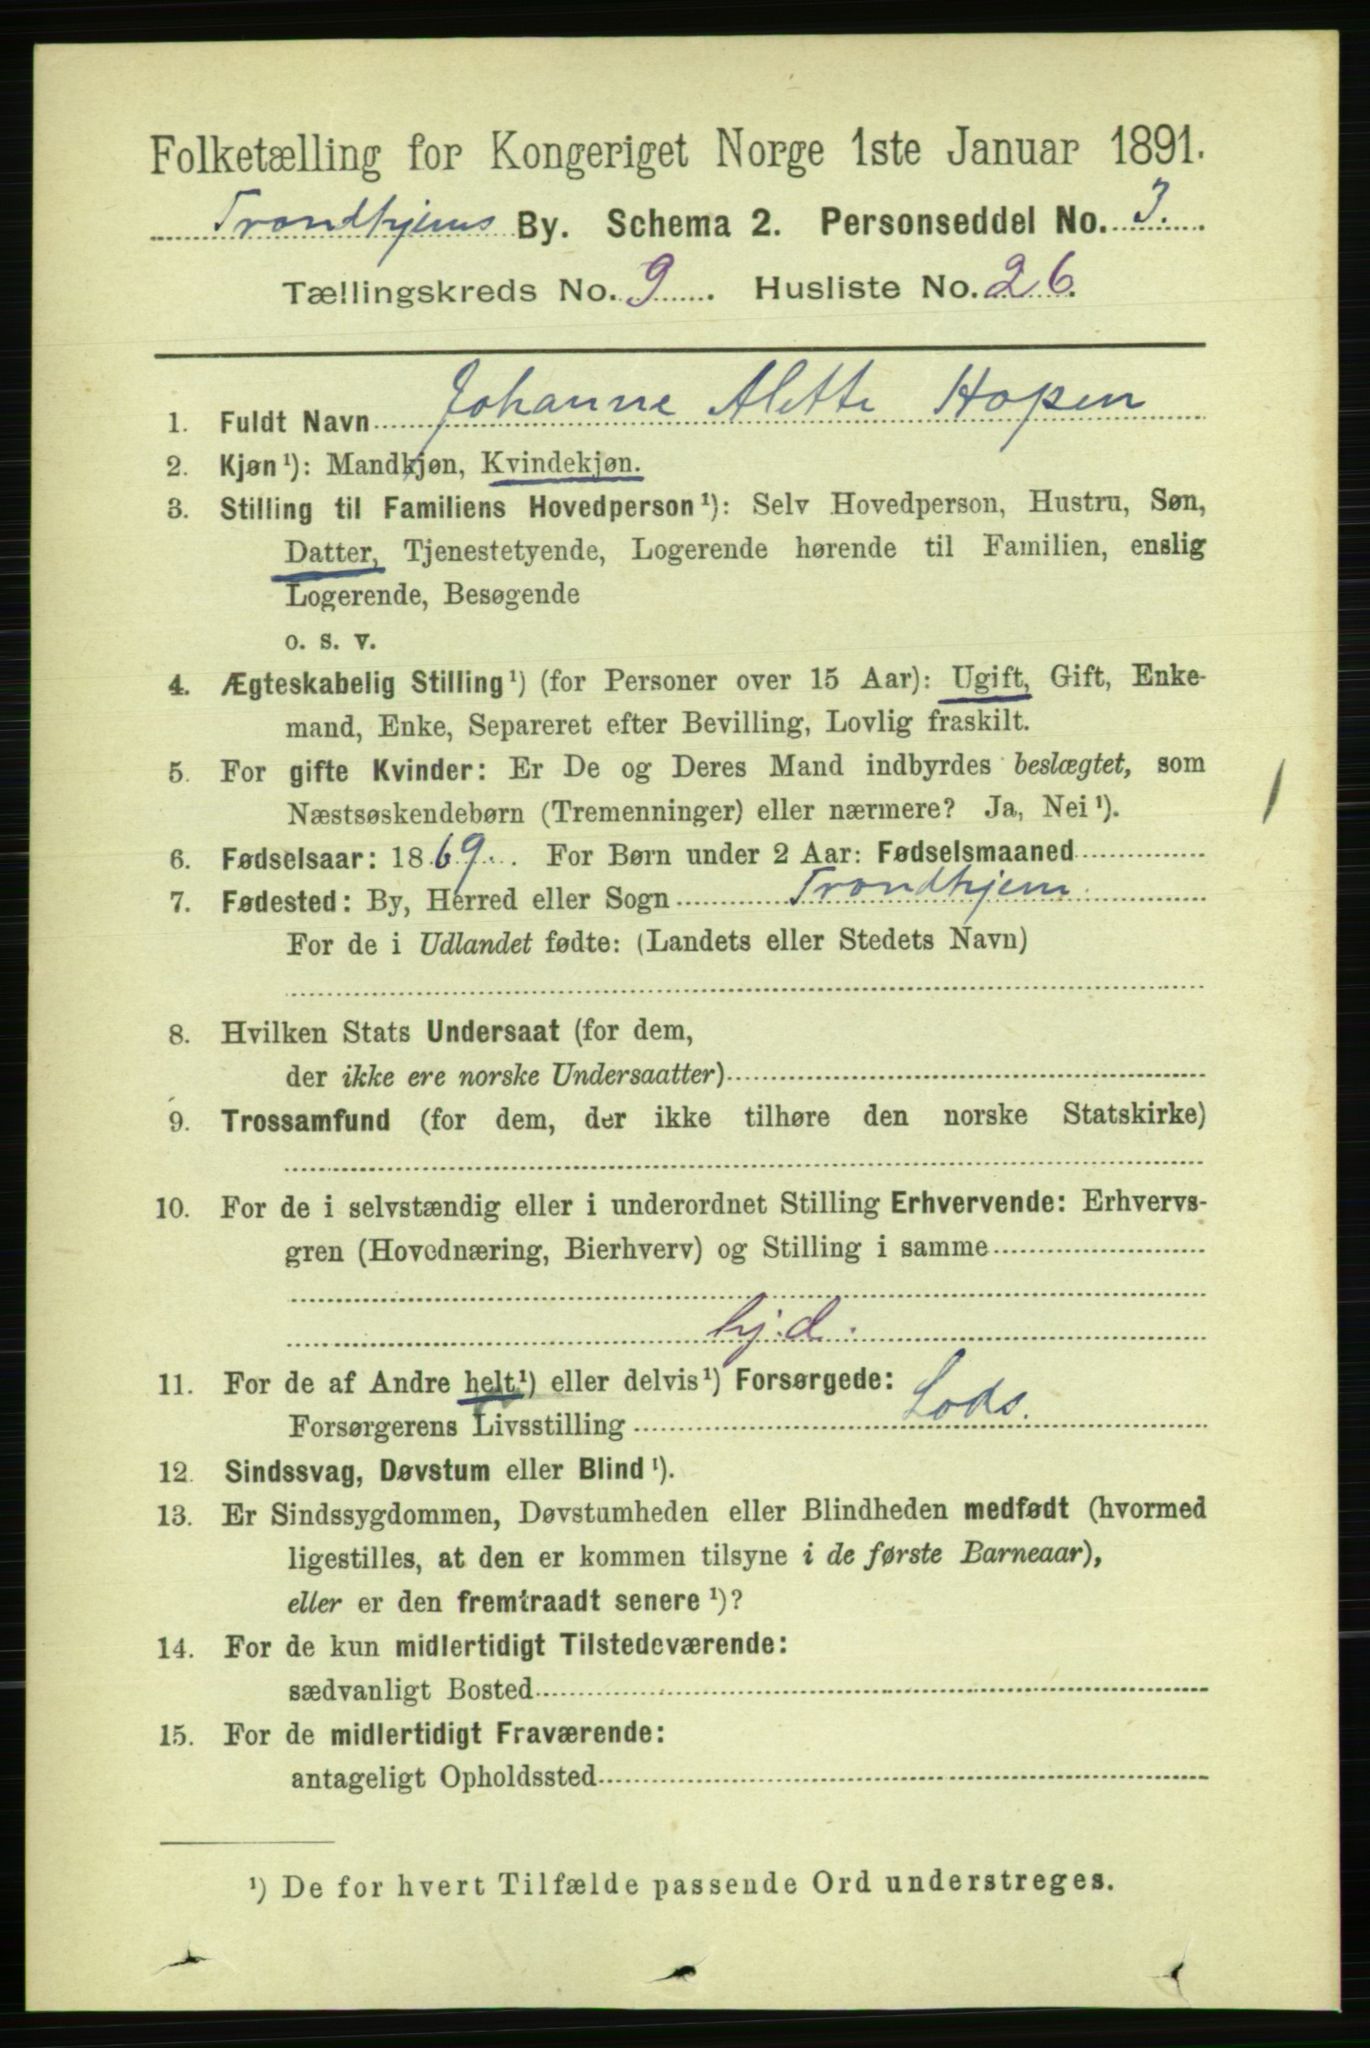 Folketælling for Kongeriget Norge 1ste Januar 1891.
Trondhjems By. Schema 2. Personseddel No. 3.
Tællingskreds No. 9. Husliste No. 26.
1. Fuldt Navn Johanne Alette Hopen
2. Kjøn¹): Mandkjøn, Kvindekjøn.
3. Stilling til Familiens Hovedperson¹): Selv Hovedperson, Hustru, Søn,
Datter, Tjenestetyende, Logerende hørende til Familien, enslig
Logerende, Besøgende
o. s. v.
4. Ægteskabelig Stilling¹) (for Personer over 15 Aar): Ugift, Gift, Enke-
mand, Enke, Separeret efter Bevilling, Lovlig fraskilt.
5. For gifte Kvinder: Er De og Deres Mand indbyrdes beslægtet, som
Næstsøskendebørn (Tremenninger) eller nærmere? Ja, Nei¹).
6. Fødselsaar: 1869. For Børn under 2 Aar: Fødselsmaaned
7. Fødested: By, Herred eller Sogn Trondhjem.
For de i Udlandet fødte: (Landets eller Stedets Navn)
8. Hvilken Stats Undersaat (for dem,
der ikke ere norske Undersaatter)
9. Trossamfund (for dem, der ikke tilhøre den norske Statskirke)
10. For de i selvstændig eller i underordnet Stilling Erhvervende: Erhvervs-
gren (Hovednæring, Bierhverv) og Stilling i samme
hj. d.
11. For de af Andre helt¹) eller delvis¹) Forsørgede:
Forsørgerens Livsstilling Lods.
12. Sindssvag, Døvstum eller Blind¹).
13. Er Sindssygdommen, Døvstumheden eller Blindheden medfødt (hvormed
ligestilles, at den er kommen tilsyne i de første Barneaar),
eller er den fremtraadt senere¹)?
14. For de kun midlertidigt Tilstedeværende:
sædvanligt Bosted
15. For de midlertidigt Fraværende:
antageligt Opholdssted
¹) De for hvert Tilfælde passende Ord understreges.